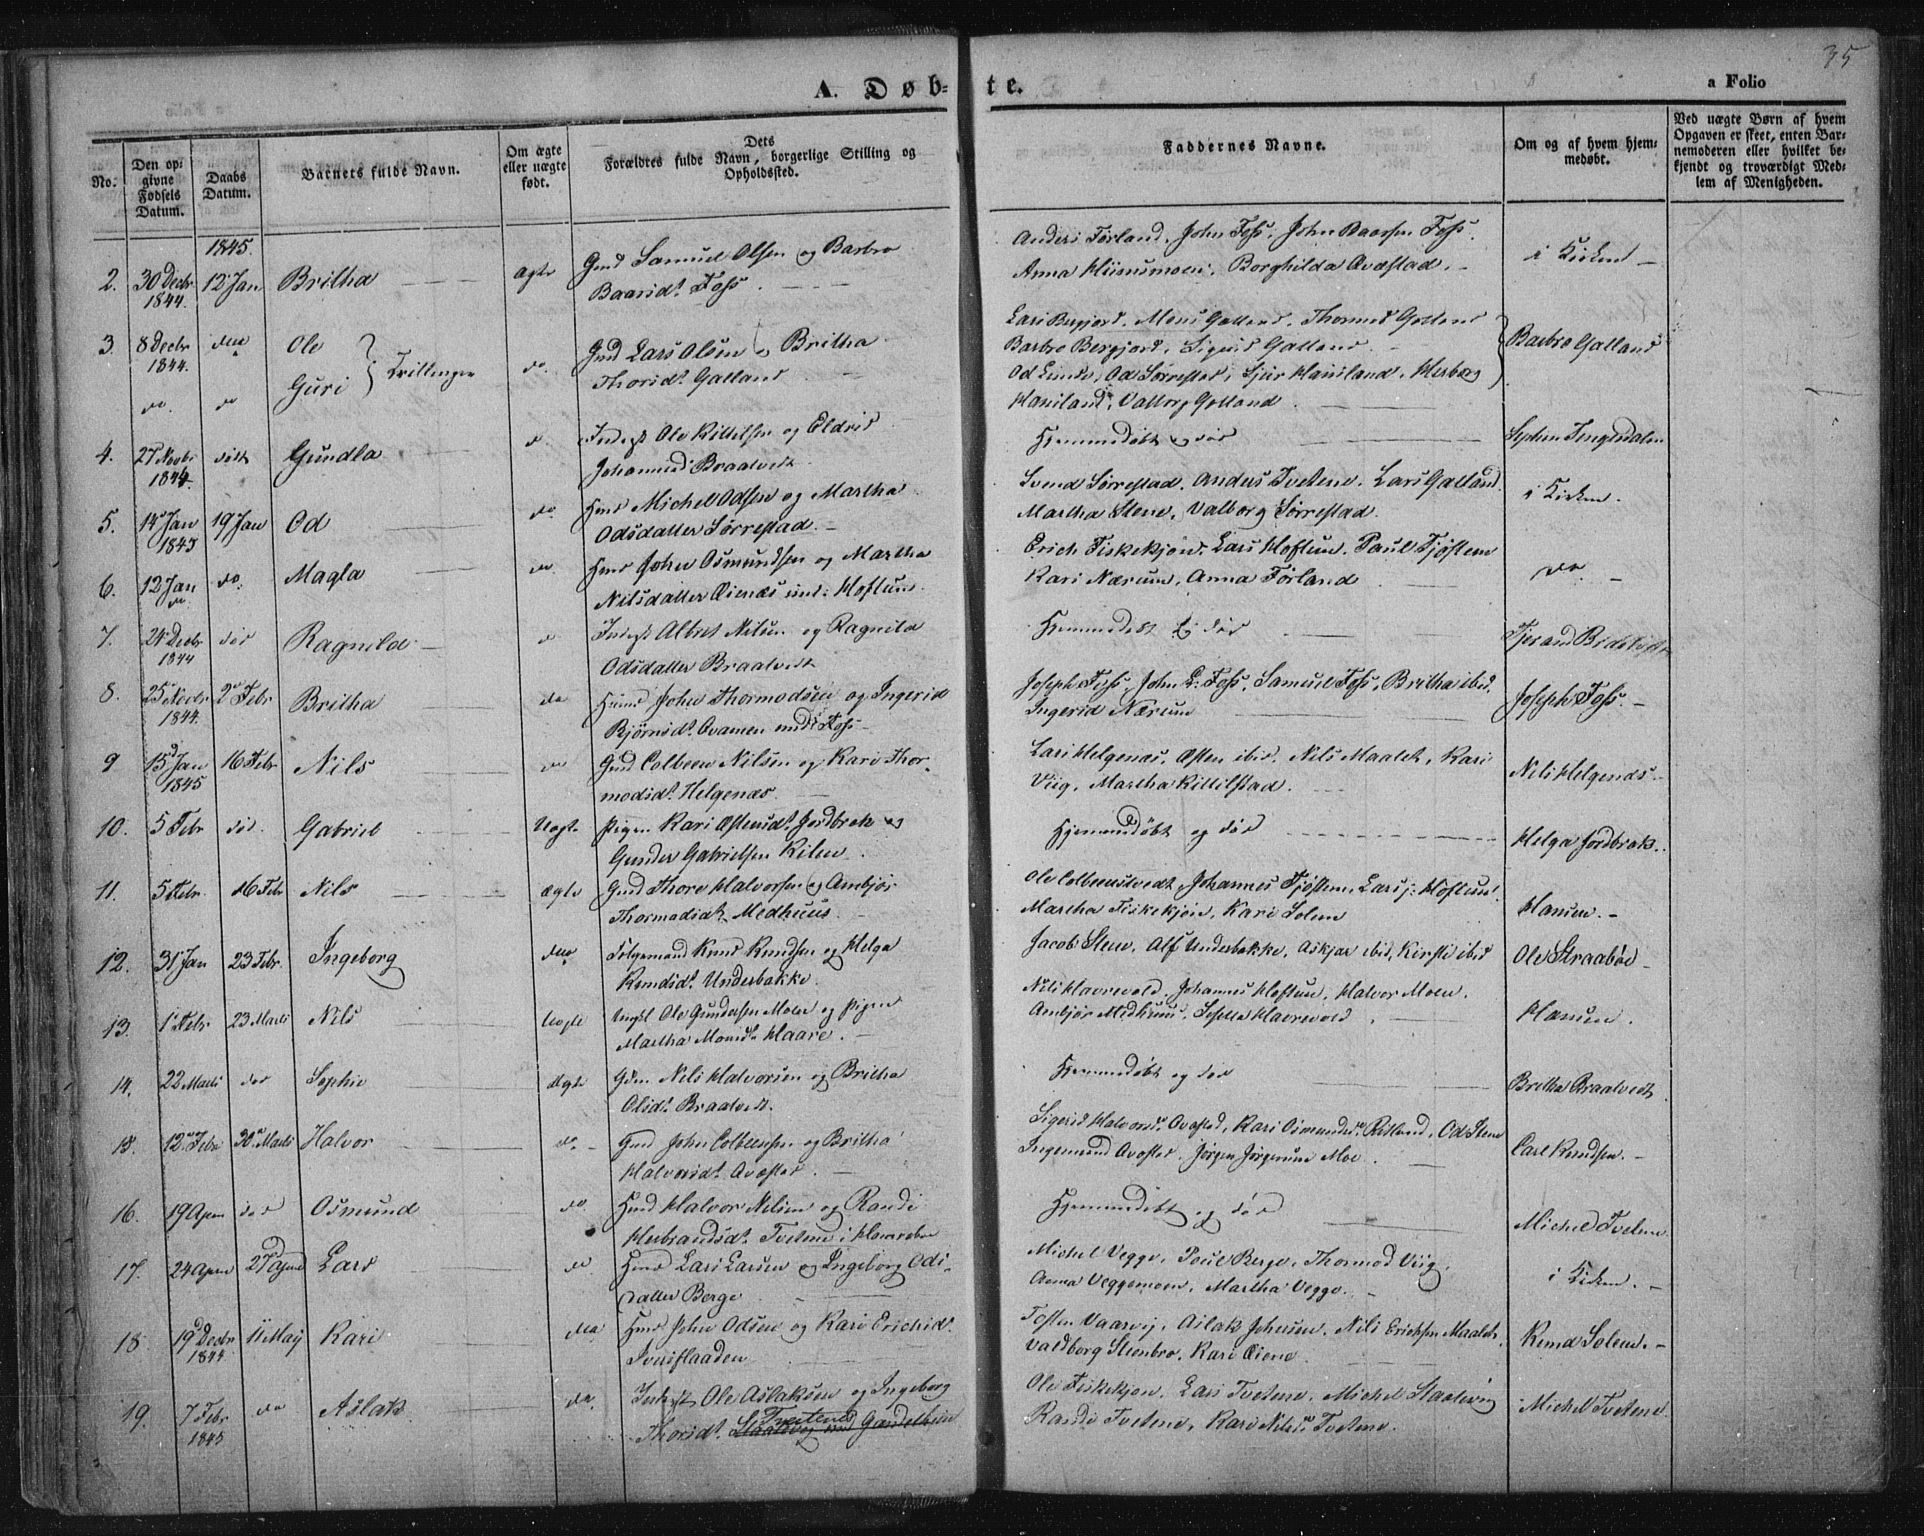 35
A. Døb-
te.
a Folio
No.
Den op-
givne
Fødsels
Datum.
Daabs
Datum.
Barnets fulde Navn.
Om ægte
eller uægte
født.
Dets
Forældres fulde Navn, borgerlige Stilling og
Opholdssted.
Faddernes Navne.
Om og af hvem hjem-
medøbt.
Ved uægte Børn af hvem
Opgaven er skeet, enten Bar-
nemoderen eller hvilket be-
kjendt og troværdigt Med-
lem af Menigheden.
1845.
2. 30 Decbr 12 Jan Britha Ægte Gmd Samuel Olsen og Barbro
1844. Baarsd. Foss
Anders Førland, John Foss, John Baarsen Foss.
Anna Borghilda Avæstad. i Kirken
3. 8 Decbr do Ole Tvillinger do Gmd Lars Olsen og Britha
1844. Guri Thorsd. Galland
do do
Lars Bergjord, Mons Galland, Thormod Galland
Barbro Bergjord, Sigrid Galland
Od Lunde, Od Sørrestad, Sjur Haviland, Herborg
Haviland, Valborg Galland. Barbro Galland
4. 27 Novbr død Gundla do Ole Kittilsen og Eldrid
1844. Johannesd. Braatvedt
Hjemmedøbt og død
5. 14 Jan 19 Jan Od do Hmd Michel Odsen og Martha
1845 Odsdatter Sørrestad.
Svend Sørrestad, Anders Tvetene, Lars Galland.
Martha Stene, Valborg Sørrestad. i Kirken.
6. 12 Jan do. Magla do Hmd John Osmundsen og Martha
do. Nilsdatter Øienæs Hoftun.
Erich Fiskekjøn, Lars Hoftun, Paul Tjøstem
Kari Nærum, Anna Førland do.
7. 24 Decbr død Ragnild do Albret Nilsen og Ragnild
1844 Odsdatter Braatvedt
Hjemmedøbt og død
8. 25 Novbr 2 Febr Britha do Huusmd John Thormodsen og Ingerid
1844. Bjørnsd. Ovamen under Foss
Joseph Foss, John Foss, Samuel Foss, Britha ibid.
Ingerid Nærum Joseph Foss.
9 15 Jan 16 Febr Nils do Gmd Colbeen Nilsen og Kari Thor-
1845 modsd. Helgenæs.
Lars Helgenæs, Østen ibid. Nils Maalet, Kari
Viig, Martha Kittilstad. Nils Helgenæs.
10. 5 Febr død. Gabriel Uægte Pigen Kari Østensd. Jordbræk og
Gunder Gabrielsen Kilen.
Hjemmedøbt og død Helga Jordbræk.
11. 5 Febr. 16 Febr Nils Ægte Gmd Thore Halvorsen og Ambjør
Thormodsd. Medhuus.
Ole Colbeenstvedt, Johannes Tjøstem, Lars Hoftun
Martha Fiskekjøn, Kari Solem Hansen.
12. 31 Jan 23 Febr. Ingeborg do Følgemand Knud Knudsen og Helga
Underbakke.
Jacob Stene, Alf Underbakke, Askjær ibid, Kirsti ibid Ole Straabøe
13. 1 Febr 23 Marts Nils Uægte Ungk Ole Gundersen Moen og Pigen
Martha Monsd. Haare.
Nils Havrevold, Johannes Hoftun, Halvor Moen.
Ambjør Medhuus, Havrevold. Hansen.
14. 22 Marts død Sophie Ægte Gdm Nils Halvorsen og Britha
Olsd. Braatvedt.
Hjemmedøbt og død Britha Braatvedt.
15. 12 Febr 30 Marts Halvor do Gmd John Colbeensen og Britha
Halvorsd. Avæstad.
Sigrid Halvorsd. Avæstad, Kari Osmundsd. Risland, Od Stene
Ingemund Avæstad, Jørgen Jørgensen Moe. Carl Knudsen.
16. 19 April død Osmund do Hmd Halvor Nilsen og Randi
Herbrandsd. Tvetene i
Hjemmedøbt og død Michel Tvetene.
17. 24 April 27 April Lars do Hmd Lars Larsen og Ingeborg Ods-
datter Berge
Michel Vegge, Poul Berge, Thormod Viig,
Anna Veggemoen, Martha Vegge. i Kirken.
18 19 Decbr 11 Maij Kari do Hmd John Odsen og Kari Erichsd.
1844 Sveisflaaden
Tosten Vaarvig, Aslak Johnsen, Nils Erichsen Maalet,
Valdborg Steenbro, Kari Øiene. Solem.
19. 7 Febr do Aslak do. Ole Aslaksen og Ingeborg
1845 Thorsd. Tvetene
Ole Fiskekjøn, Lars Tvetene, Michel Staalevig
Randi Tvetene, Kari Nilsd. Tvetene. Michel Tvetene